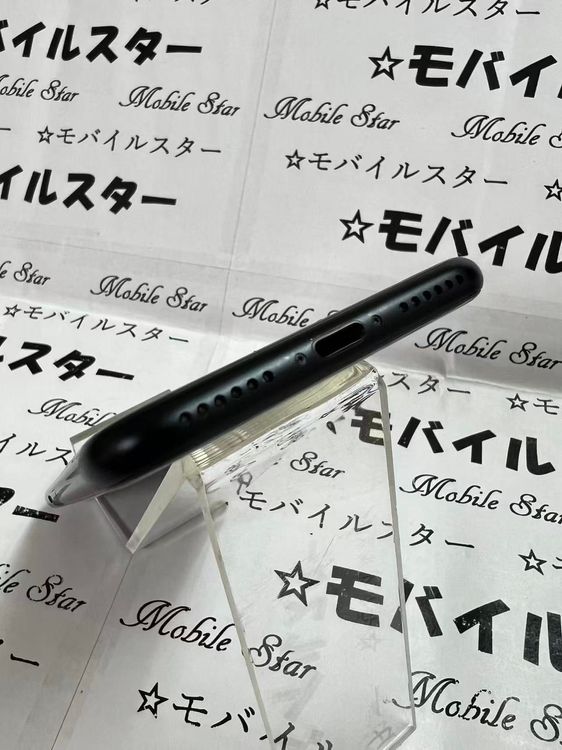 モバイルスター
☆モバイルスター
Mobile Star
Mobile Star
Mobile Star
Mobile Star
☆モバイルスター
☆モバイルスター
イルスター
☆モバイル
Mobile Star
Mobile Star
Mobile Star
☆モバイルスター
ルスター
スター
☆モ
Mobile
モバイル
Star
Mobile Star
☆モバイルスター
☆モ
ター
☆モバイル
Mobile Star
Mobile Star
Mobile Star
☆モバイル